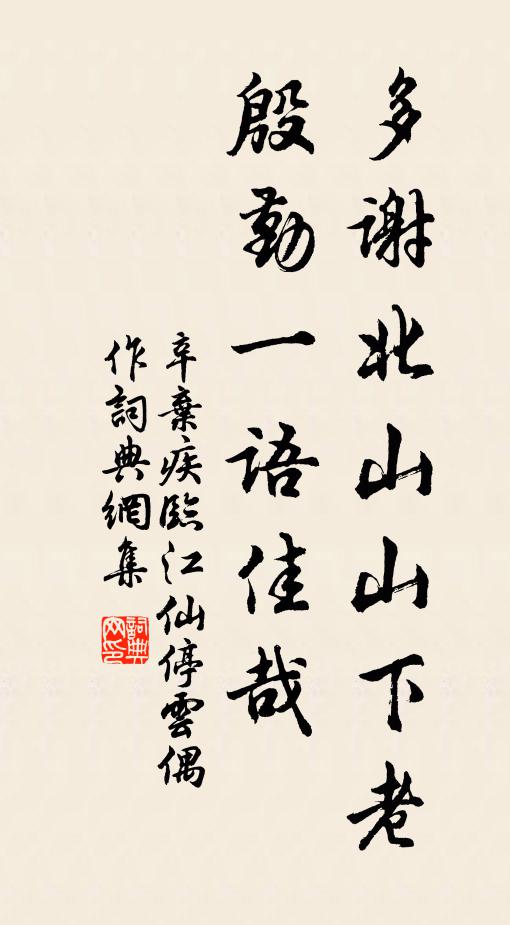 多谢北山山下老
殷勤一语佳哉
辛棄疾臨江仙停雲偶
作詞典網集
詞典
网印